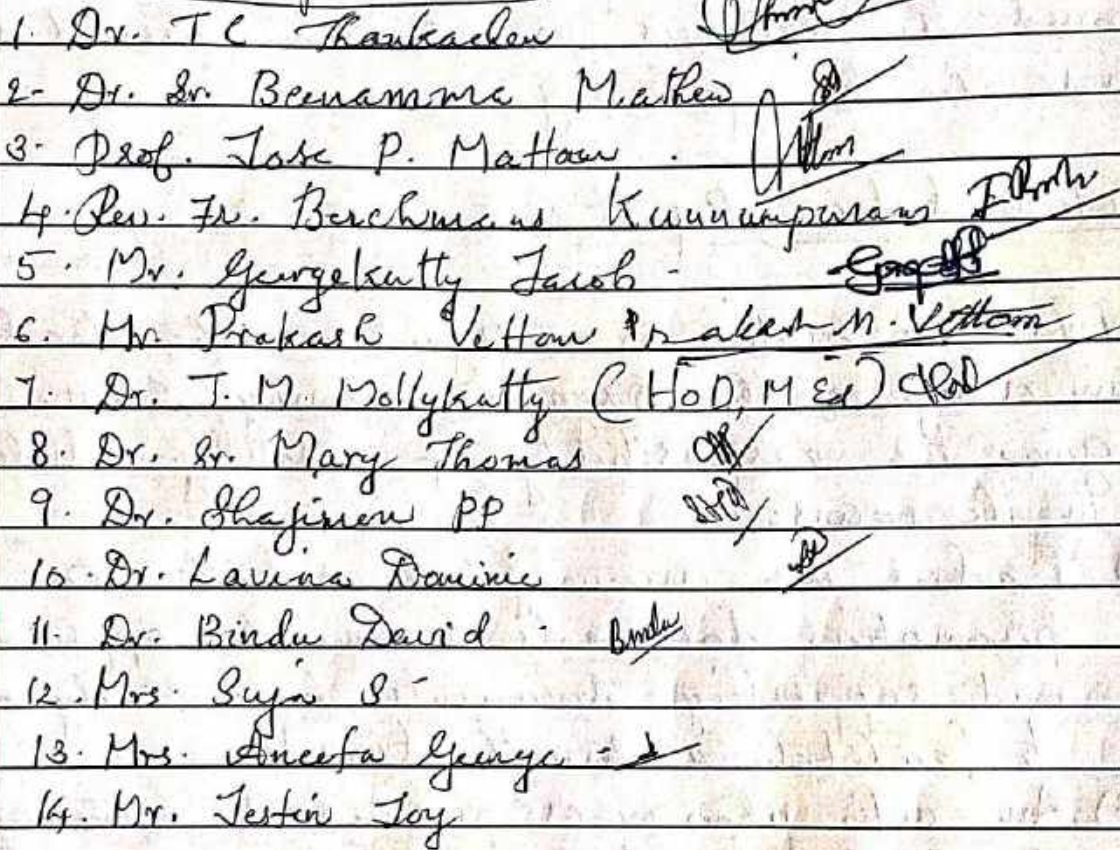 1. Dr. T C Thankachen
2- Dr. Sr. Beenamma Mathew
3. Prof. Jose P. Mattam .
4. Rev. Fr. Berchmans Kunnumpuram
5. Mr. Georgekutty Jacob -
6. Mr. Prakash Vettom Prakash M. Vettom
7. Dr. T. M. Mollykutty (HoD, M Ed)
8. Dr. Sr. Mary Thomas
9. Dr. Shajimon PP
10. Dr. Lavina Dominic
11. Dr. Bindu David . Bindu
12. Mrs. Suja S -
13. Mrs. Aneeta George -
14. Mr. Jestin Joy